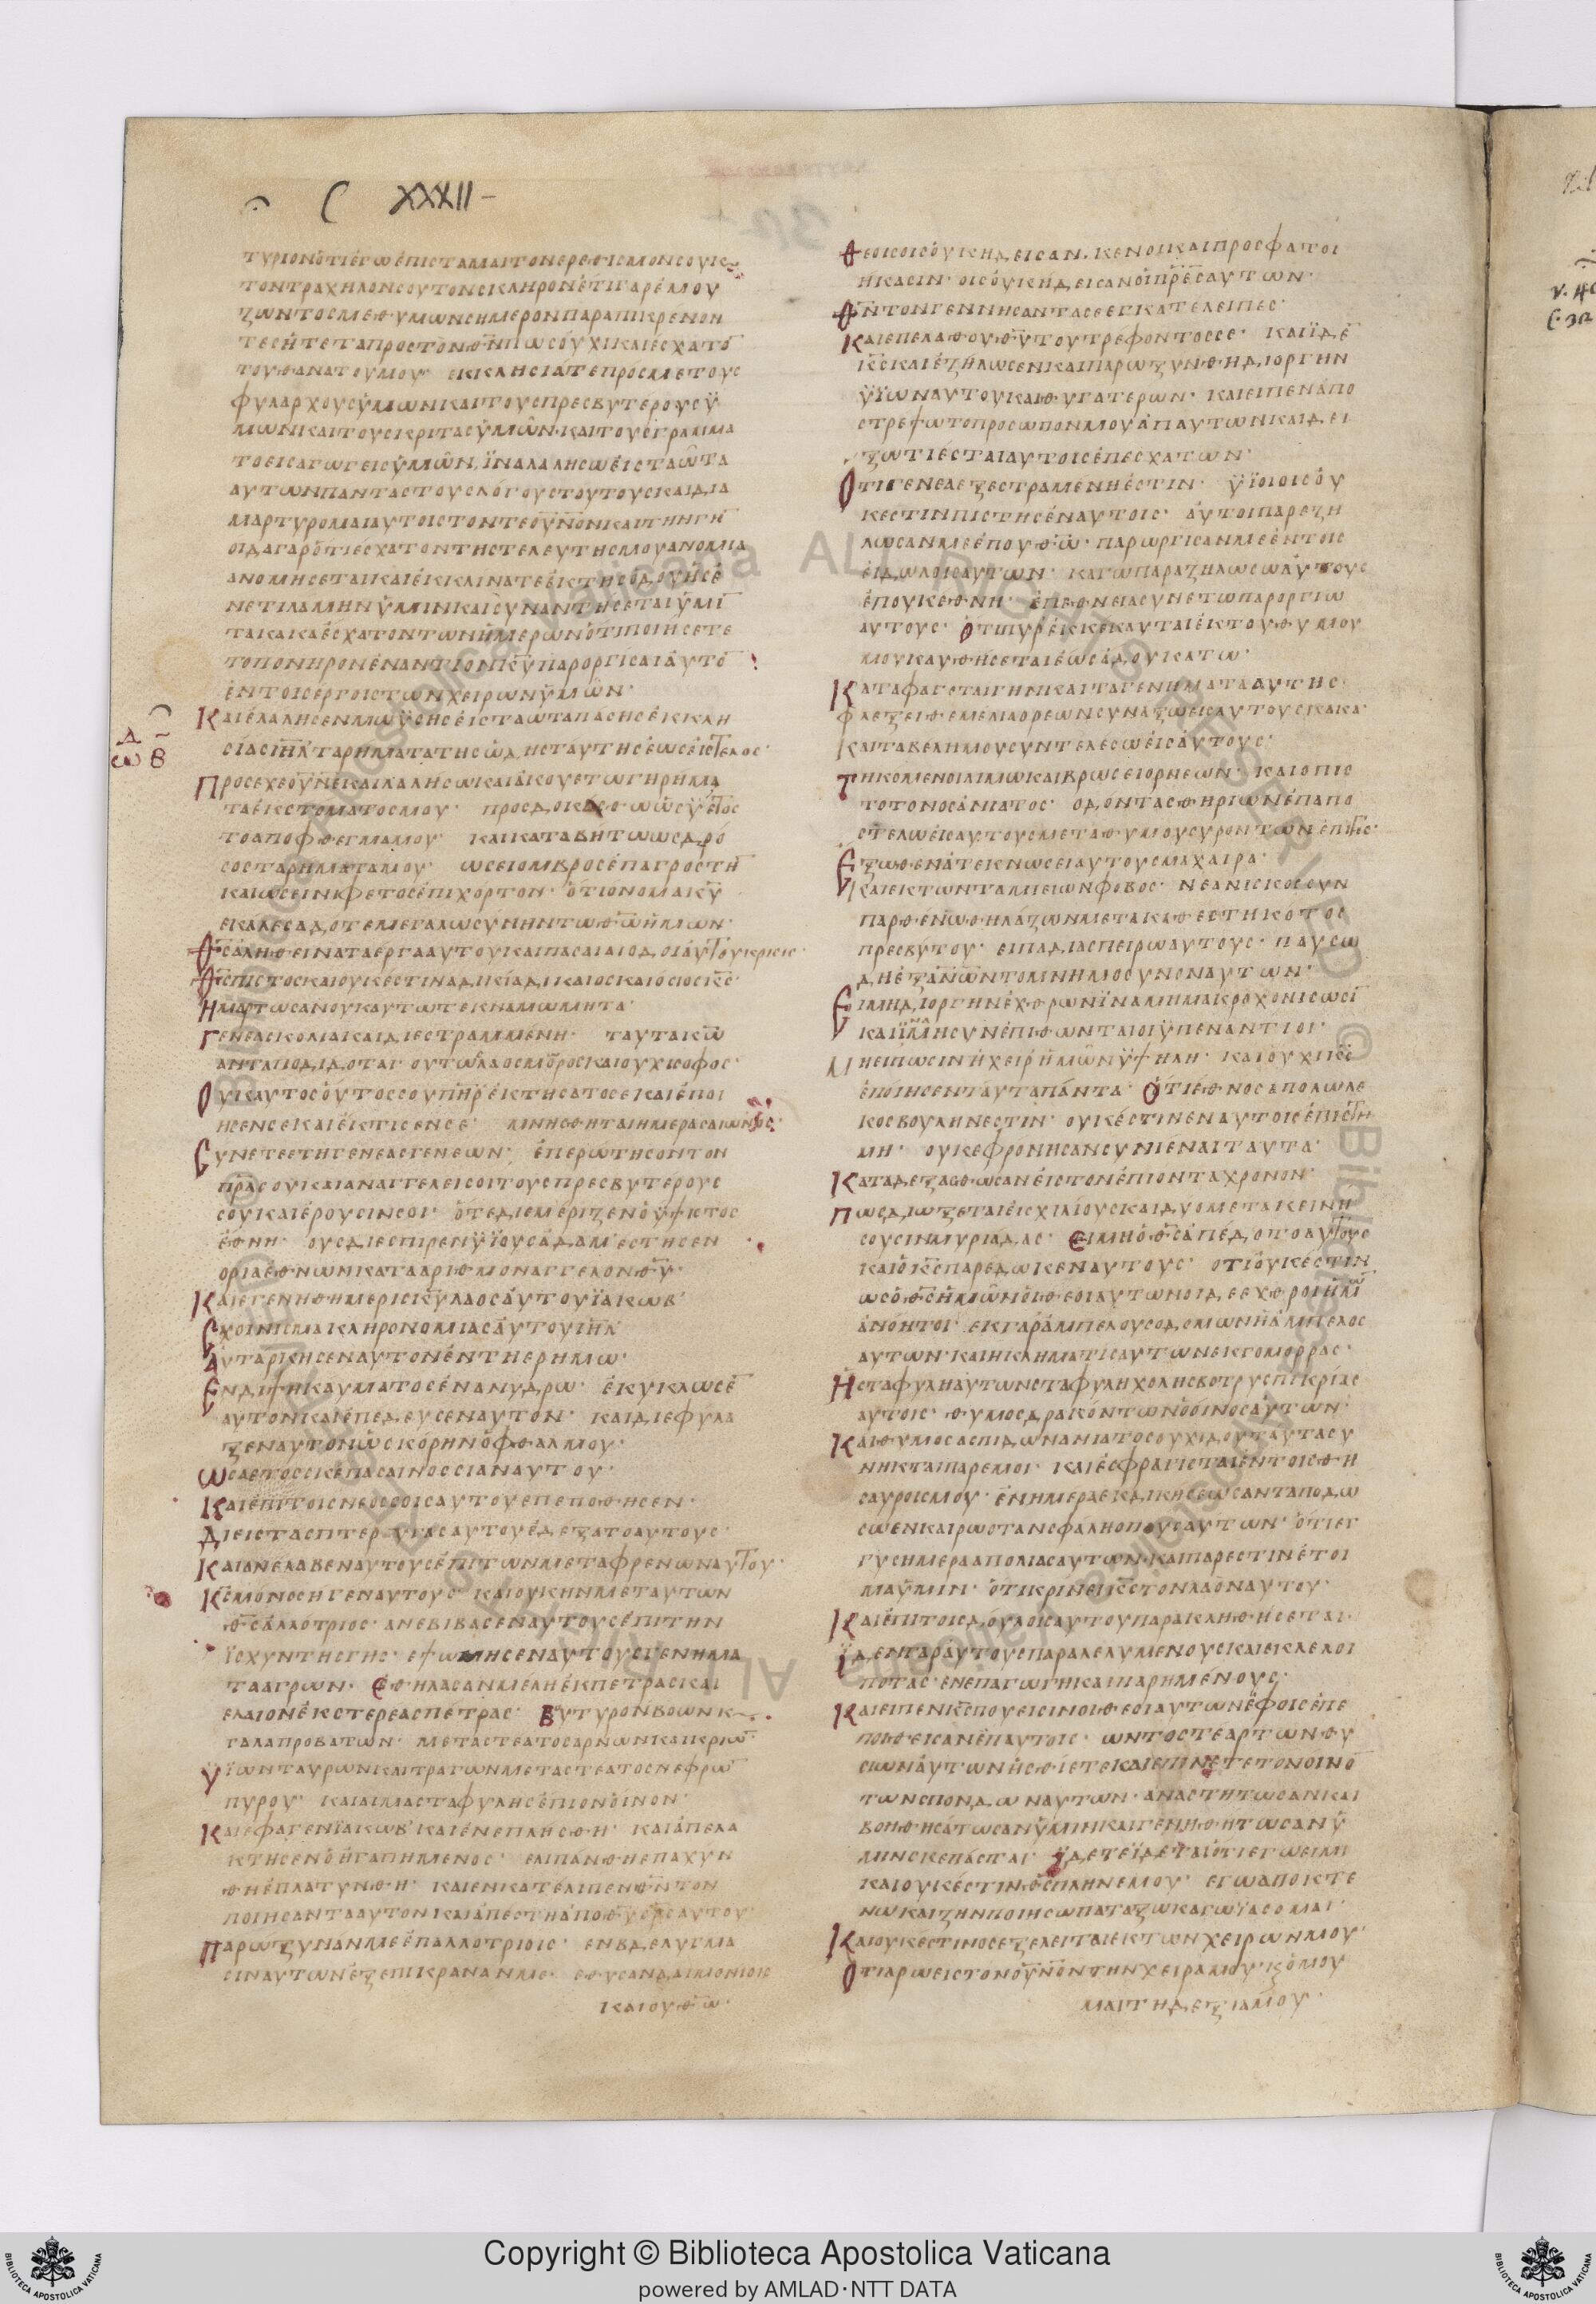 C XXXII -
τυριονὅτιἐγωἐπισταμαιτονερεθισμονσουκ
τοντραχηλονσουτονσκληρονἐτιγαρἐμου
ζωντοσμεθυμωνσημερονπαραπικρενον
τεσἦτεταπροστονθνπωσὀυχικαιεσχατο
τουθανατουμου· εκκλησιατεπροσμετουσ
φυλαρχουσὑμωνκαιτουσπρεσβυτερουσϋ
μωνκαιτουσκριτασὑμῶν·καιτουσγραμμα
τοεισαγωγεισὑμῶν.ϊναλαλησωεἰσταωτα
αυτωνπανταστουσλόγουστουτουσκαιδια
μαρτυρομαιαυτοιστοντεουνονκαιτηνγη
οιδαγαρὅτιέσχατοντηστελευτησμουανομια
ανομησεταικαιἐκκλινατεἐκτησοδουἧσἐ
νετιλαμηνὑμινκαισυναντησεταιὑμι
τακακαἐσχατοντωνἡμερωνὅτιποιήσετε
τοπονηρονἐναντιονκυπαροργίσαιἀυτὸ
ἐντοισεργοιστωνχειρωνὑμων·
Καιἐλαλησενμωϋσησἐισταωταπάσησἐκκλη
σίασιηλταρηματατησὠδησταύτησἑωσἐιστελοσ·
Προσεχεουνεκαιλαλησωκαιἀκουετωγηρημα
ταἐκστοματοσμου· προσδοκασθωὡσϋετοσ
τοαποφθεγμαμου· καικαταβητωωσδρο
σοσταρηματαμου· ωσειομβροσἐπαγροστη
καιωσεινιφετοσἐπιχορτον· ὅτιονομακυ
εκαλεσαδοτεμεγαλωσυνηντωθωἡμων·
Θσἀληθειναταεργααυτουκαιπασαιαιοδοιἀυτουκρισις
Θσπιστοσκαιουκἐστιναδικίαδικαιοσκαιόσιοσκς·
Ημαρτωσανουκαυτωτεκναμωμητα·
Γενεασκολιακαιδιεστραμμενη· ταυτακω
ανταποδιδοται· ουτωλαοσμῶροσκαιουχισοφος·
Ουκαυτοσὁυτοσσουπηρἐκτησατοσεκαιἐποι
ησενσεκαιἐκτισενσε· μνησθηταιημερασαιωνος·
Συνετεετηγενεασγενεων· ἐπερώτησοντον
πρασουκαιαναγγελεισοιτουσπρεσβυτερους
σουκαιἐρουσινσοι· ὅτεδιεμεριζενὁυψιστος
ἐθνη· ουσδιεσπιρενϋϊουσἀδαμ'εστησεν
οριαἐθνωνκατααριθμοναγγελονθυ·
Καιεγενηθημερισκυλαοσἀυτουϊακωβ'
Σχοινισμακληρονομιασαυτουιηλ
Αυταρκησεναυτονἐντηερημω·
Ενδιψηκαυματοσἐνανυδρω· ἐκυκλωσε
αυτονκαιἐπεδευσεναυτον· καιδιεφυλα
ξεναυτονὡσκόρηνὀφθαλμου·
Ωσαετοσσκεπασαινοσσιαναυτου·
Καιἐπιτοισνεοσσοισαυτουεπεποθησεν·
Διειστασπτερυγασαυτουἐδεξατοαυτους·
Καιανἐλαβεναυτουσἐπιτωνμεταφρενωναυτου·
Κσμόνοσηγεναυτους· καιουκηνμεταυτων
θσἀλλότριος· ανεβιβασεναυτουσἐπιτην
ϊσχυντησγης· εψωμησεναυτουσγενημα
τααγρων· Εθηλασανμέληἐκπετρασκαι
ελαιονἐκστερεασπέτρας· Βυτυρονβοωνκ
γαλαπροβατων· μεταστεατοσαρνωνκαικριω
Υϊωνταυρωνκαιτραγωνμεταστεατοσνεφρω
πυρου· καιαιμασταφυλησἐπιονοἰνον·
Καιεφαγενϊακωβ'καιἐνεπλήσθη· καιἀπελα
κτησενὁἠγαπημενος· ελιπάνθηεπαχυν
θηἐπλατυνθη· καιενκατέλιπενθντον
ποιησαντααυτονκαιἀπεστηἀποθυσρσαυτου·
Παρωξυνάνμεἐπαλλοτριοις· ενβδελυγμα
σιναυτωνἐξεπικρανανμε· εθυσανδαιμονιοις
καιουθω·
Θεοισοισὀυκηδεισαν.κενοικαιπροσφατοι
ηκασιν· οισὀυκήδεισανὁιπρεσαυτων·
Θντονγεννησαντασεεγκατελειπες·
Καιεπελαθουθυτουτρεφοντοσσε· καιϊδε
κσκαιἐζήλωσενκαιπαρωξυνθηδιοργην
ϋϊωναυτουκαιθυγατερων· καιειπενἀπο
στρεψωτοπροσωπονμουἀπαυτωνκαιδει
ξωτιέσταιαυτοισἐπεσχατων·
Οτιγενεαεξεστραμενηἐστιν· ϋϊοιοισὀυ
κεστινπιστησἐναυτοις· ἀυτοιπαρεζη
λωσανμεἐπουθω· παρωργισανμεἐντοις
εἰδωλοισαυτων· καγωπαραζηλωσωἀυτους
ἐπουκεθνη· ἐπεθνειασυνετωπαροργιω
αυτους· Οτιπυρἐκκεκαυταιἐκτουθυμου
μουκαυθησεταιἑωσἀδουκατω·
Καταφαγεταιγηνκαιταγενηματααυτης·
φλεξειθεμελιαορεωνσυναξωεισαυτουσκακα·
Καιταβεληημουσυντελεσωἐισἀυτους·
Τηκομενοιλιμωκαιβρωσειορνεων· καιοπις
τοτονοσἀνιατος· οδοντασθηριωνἐπαπο
στελωἐισαυτουσμεταθυμουσυροντωνἐπιγης·
Εξωθενἀτεκνωσειαυτουσμαχαιρα·
Καιεκτωνταμιειωνφοβος· νεανισκοσσυν
παρθἐνωθηλάζωνμετακαθεστηκοτος
πρεσβυτου· ειπαδιασπειρωαυτους· παυσω
δηἐξἀνωντομνημοσυνοναυτων·
Ειμηδιοργηνἐχθρωνϊναμημακροχονισωσι
καιϊναμησυνἐπιθωνταιοιϋπεναντιοι·
Μηειπωσινἡχειρἡμῶνϋψηλη· καιουχικς
ἐποίησενταυταπάντα· Οτιἐθνοσαπολωλε
κοσβουληνεστιν· ουκἐστινεναυτοισἐπιστη
μη· ουκεφρονησανσυνιεναιταυτα·
Καταδεξασθωσανἐιστονἐπιονταχρονον·
Πωσδιωξεταιἐισχιλίουσκαιδυομετακεινη
σουσινμυριάδας· Ειμηὁθσἀπέδοτοαυτους
καιὁκσπαρεδωκεναυτους· οτιὀυκἐστιν
ωσὁθσἡμῶνὁιθεοιαυτωνοιδεεχθροιἡμ
ἀνόητοι· εκγαρἀμπελουσοδομωνἡἀμπελος
αυτων·καιηκληματὶσαυτωνεκγομορρας·
Ησταφυληαυτωνσταφυληχολησβοτρυσπικρίας
αυτοις· θυμοσδρακόντωνὁοινοσἀυτων·
Καιθυμοσασπιδωνανιατοσουχιδουταυτασυ
νηκταιπαρεμοι· καιἐσφραγισταιἐντοισθη
σαυροισμου· ἐνημεραεκδικησεωσανταποδω
σωενκαιρωοτανσφάληοπουσαυτων· ὁτιεγ
γυσημερααπολιασαυτων·καιπαρεστινἑτοι
μαϋμιν· ὁτικρινεικστονλαὸναυτου·
Καιἐπιτοισδούλοισαυτουπαρακληθήσεται·
Ϊδενγαρἀυτουσπαραλελυμενουσκαιεκλελοι
ποτας· ενεπαγωγηκαιπαρημένους·
Καιειπενκσπουεισινοιθεοιαυτωνἐφοισἐπε
ποιθεισανἐπαυτοις· ωντοστεαρτωνθυ
σιωνἀυτωνἠσθίετεκαιεπινετετονοινο
τωνσπονδωναυτων· αναστητωσανκαι
βοηθησάτωσανϋμινκαιγενηθητωσανϋ
μινσκεπάσται· Ϊδετεϊδεταιὅτιεγωειμι
καιουκἐστινθσπληνεμου· εγωαποκτε
νωκαιζηνποιησωπαταξωκαγωϊασομαι·
Καιουκεστινοσεξελειταιεκτωνχειρωνμου·
Οτιαρωειστονουνοντηνχειραμου·κομου
μαιτηδεξιαμου·
Copyright © Biblioteca Apostolica Vaticana
powered by AMLAD·NTT DATA